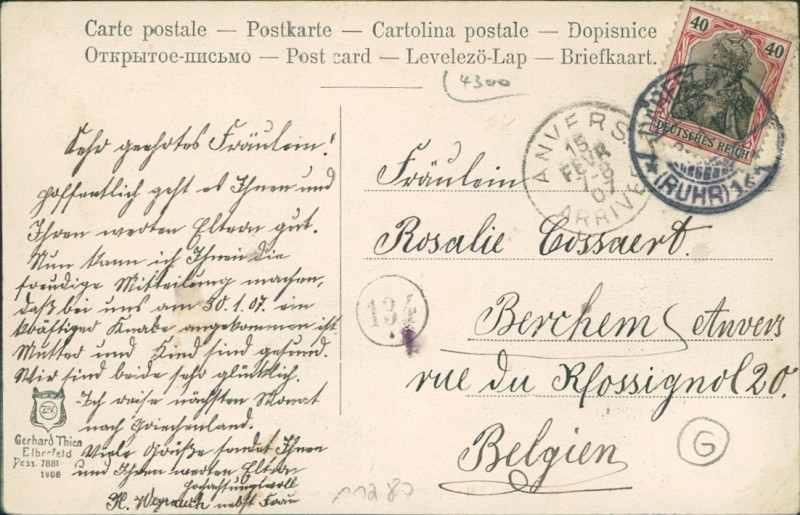 Carte postale — Postkarte — Cartolina postale — Dopisnice
Открытое-письмо — Post card — Levelezö-Lap — Briefkaart.
4300
40 40
DEUTSCHES REICH
(RUHR)
ANVERS
15
FEVR
07
ARRIVEE
Sehr geehrtes Fräulein!
Hoffentlich geht es Ihnen und
Ihren werten Eltern gut.
Nun kann ich Ihnen die
freudige Mitteilung machen,
daß bei uns am 30.1.07. ein
kräftiger Knabe angekommen ist
Mutter und Kind sind gesund.
Wir sind beide sehr glücklich.
Ich reise nächsten Monat
nach Griechenland.
Viele Grüße sendet Ihnen
und Ihren werten Eltern
Hochachtungsvoll
nebst Frau
Fräulein
Rosalie Cossaert.
134
Berchem Anvers
rue du Rossignol 20.
Belgien
G
Gerhard Thien
Elberfeld
Dess. 7881
1906